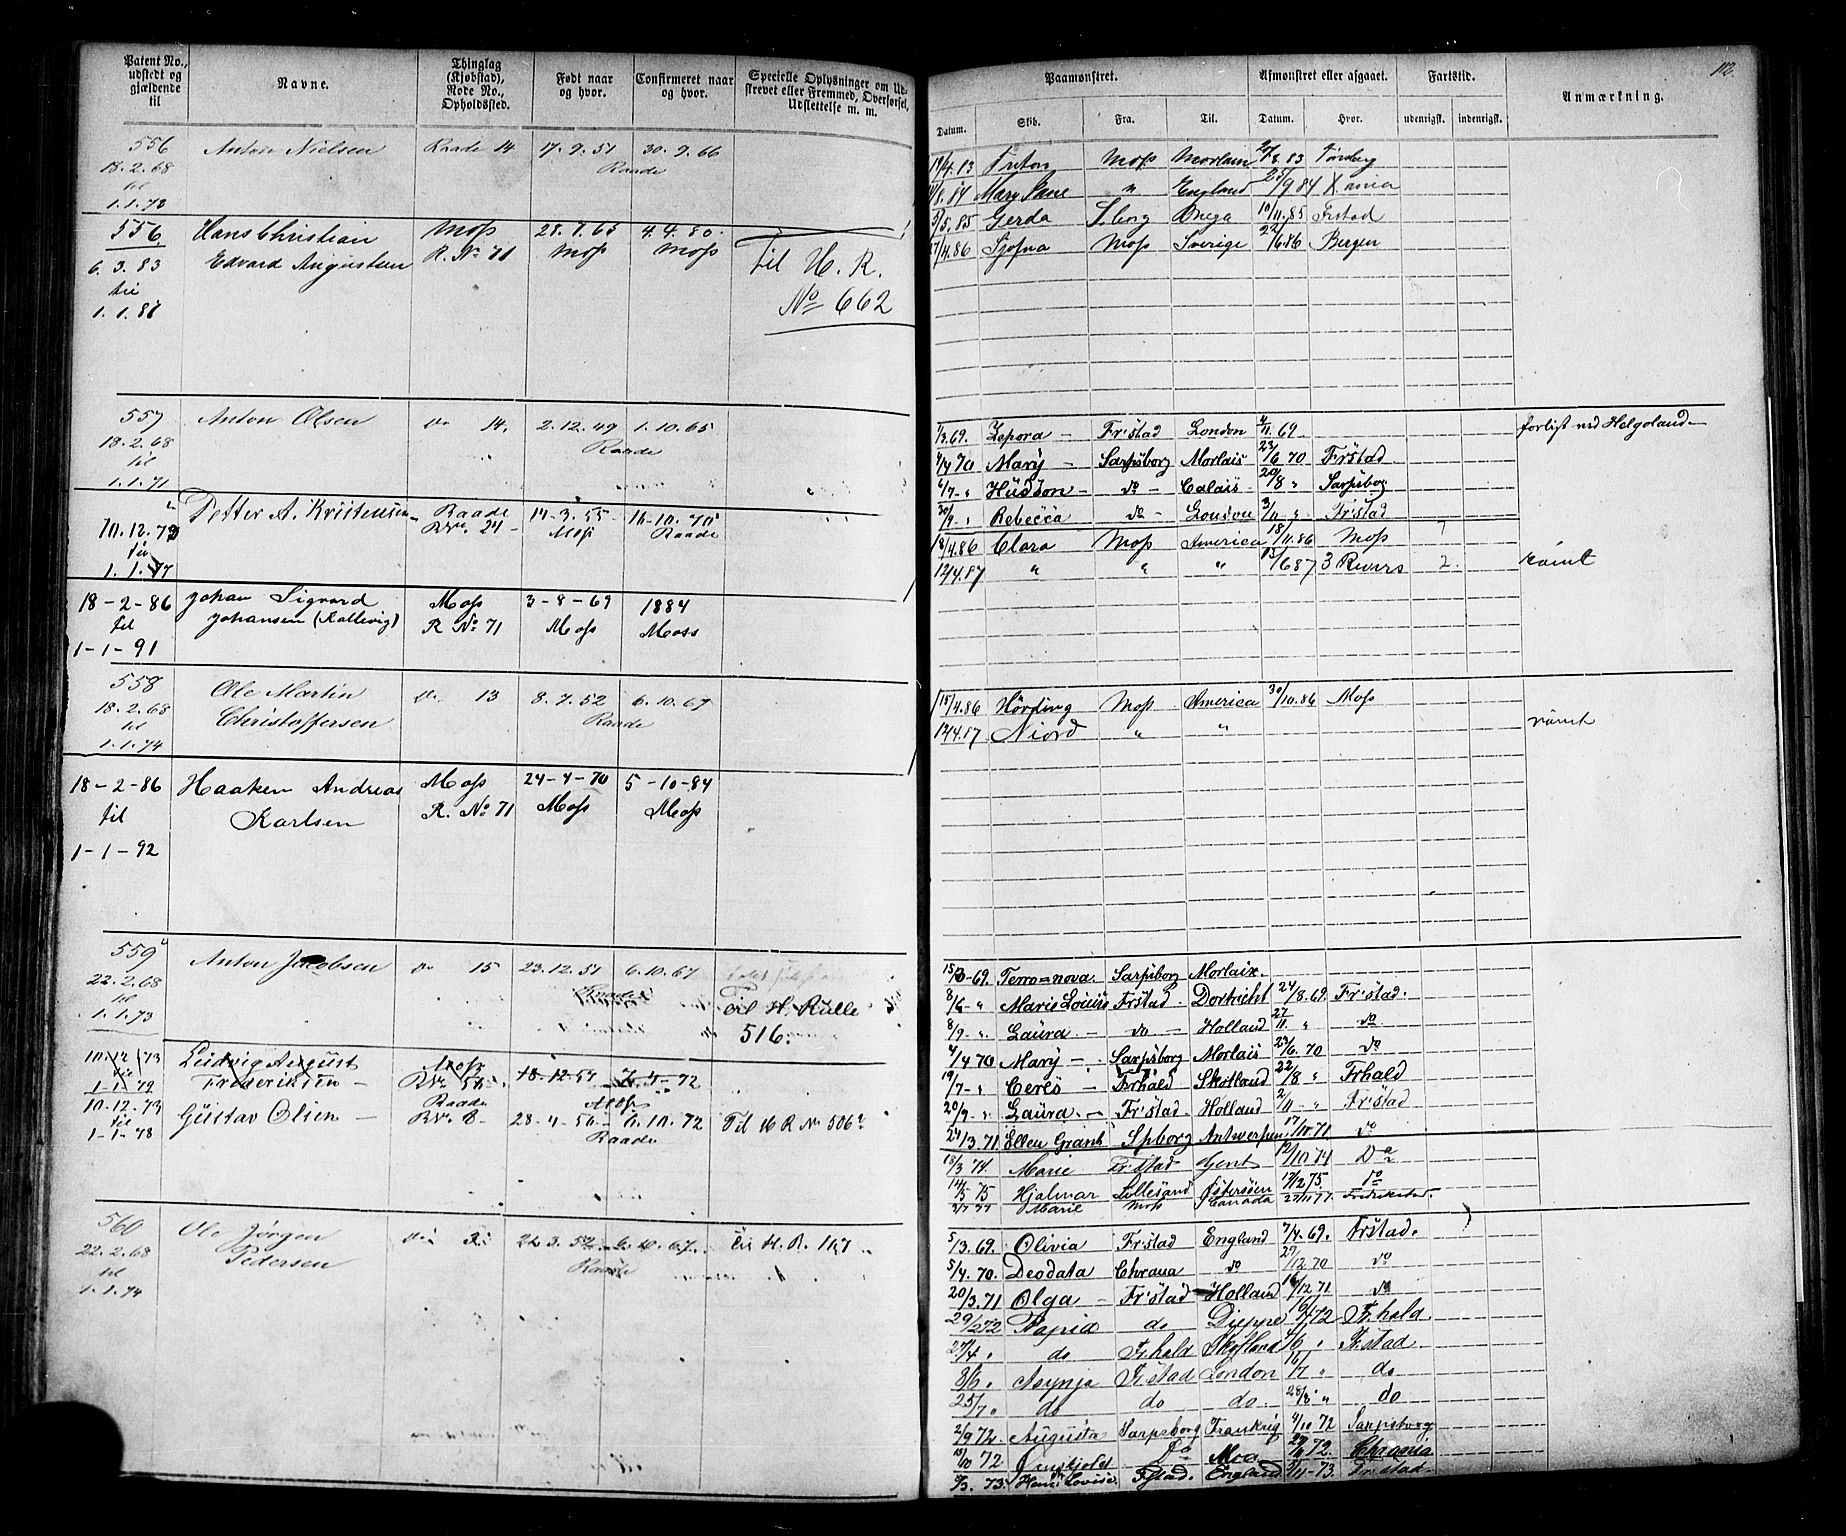 Patent No., udstedt og gjældende til
Navne.
Thinglag (Kjøbstad), Rode No., Opholdssted.
Født naar og hvor.
Confirmeret naar og hvor.
Specielle Oplysninger om Udskrevet eller Fremmed, Overførsel, Udslettelse m. m.
556 Anton Nielsen Raade 14 17.9.51 30.9.66
18.2.68 Raade
til
1.1.73
556 Hans Christian Moss 28.7.65 4.4.80.
6.3.83 Edvard Augustsen R. No 71 Moss Moss Til H. R.
til No 662
1.1.86
557 Anton Olsen do 14, 2.12.49 1.10.65
18.2.68 Raade
til
1.1.71
Petter A. Kristensen Raade 14-3-55 16-10-70
10.12.73 RNr. 24 Moss Raade
til
1.1.77
18-2-86 Johan Sigvard Moss 3-8-69 1884
til Johansen (Kallevig) R No 71 Moss Moss
1-1-91
558 Ole Martin do 13 8.7.52 6.10.67
18.2.68 Christoffersen Raade
til
1.1.74
18-2-86 Haaken Andreas Moss 24-4-70 5-10-84
til Karlsen R. No 71 Moss Moss
1-1-92
559 Anton Jacobsen do 15 23.12.51 6.10.67
22.2.68 Raade til H. Rulle
til 516.
1.1.73
10.12.73 Ludvig August Moss 18-12-57 72
til Frederiksen RNr. Moss
1-1-79
10.12.73 Gustav Olsen Raade 28-4-56 6.10.72 Til H R No 506
til RNr. 8 Raade
1-1-78
560 Ole Jørgen do 22.3.52 6.10.67 til H. R. 1167
22.2.68 Pedersen Raade
til
1.1.74
112.
Paamønstret.
Afmønstret eller afgaaet.
Fartstid.
Anmærkning.
Datum. Skib. Fra. Til. Datum. Hvor. udenrigsk. indenrigsk.
19/4.83 Triton Moss Morlaix 20/8.83 Tønsberg
11/8.84 Mary Jane " England 25/9 84 Xania
9/5.85 Gerda Omega 10/11.85 Frstad
17/4.86 Sjofna Moss Sverige 22/6.86 Bergen
1/3.69. Zepora - Fr:stad London 4/11.69 forlist ved Helgoland -
4/4 70 Mary - Sarpsborg Morlais 23/6 70 Frstad
4/7-" Hudson - do - Calais 20/8 " Sarpsborg
30/9-" Rebecca do - London 3/11 " Fr:stad
18/4.86 Clara Moss America 18/11.86 Moss 7
12/4.87 " " " 15/6 87 3 Rivers 2. rømt
15/4.86 Hørding Moss America 30/10.86 Moss
12/4.87 Niord " " rømt
15/3-69. Terra=nova. Sarpsborg Morlaix.
8/6-" Marie Louise Frstad Dortrecht 24/8.69. Fr:stad.
8/9-". Laura - do - Holland 27/11 " do
4/4 70 Mary - . Sarpsborg Morlais 23/6.70 do
19/7-" Ceres - Frhald Skotland 22/8 " Frhald
20/9-" Laura. - Fr:stad. Holland 2/11- " Fr:stad
24/3.71. Ellen Grant Spborg Antwerpen 17/10.71 do
18/3 74. Marie Fr:stad Gent 12/10 74 Do
14/5 75 Hjalmar Lillesand Østersøen 13/12 75. do
Marie Moss Canada
5/3.69. Olivia Frstad England 7/4.69. Frstad.
5/4.70. Deodata Chrania do 27/12.70 do
20/3.71 Olga - Fr:stad Holland 16/12.71 do
29/2 72 do Dieppe 9/4 72 Fr.hald.
25/4 " do Frhald Skotland /6 " Fr.stad
3/6. Asynja Fr.stad London 16/7 " do
25/7 " do do do. 28/8 " do
2/9 72. Augusta Sarpsborg Frankrig 4/10 72 Sarpsborg
15/10 72 Do 72. Chrania
73. Henr. Lovise Fr.stad. England 73. Fr.stad.